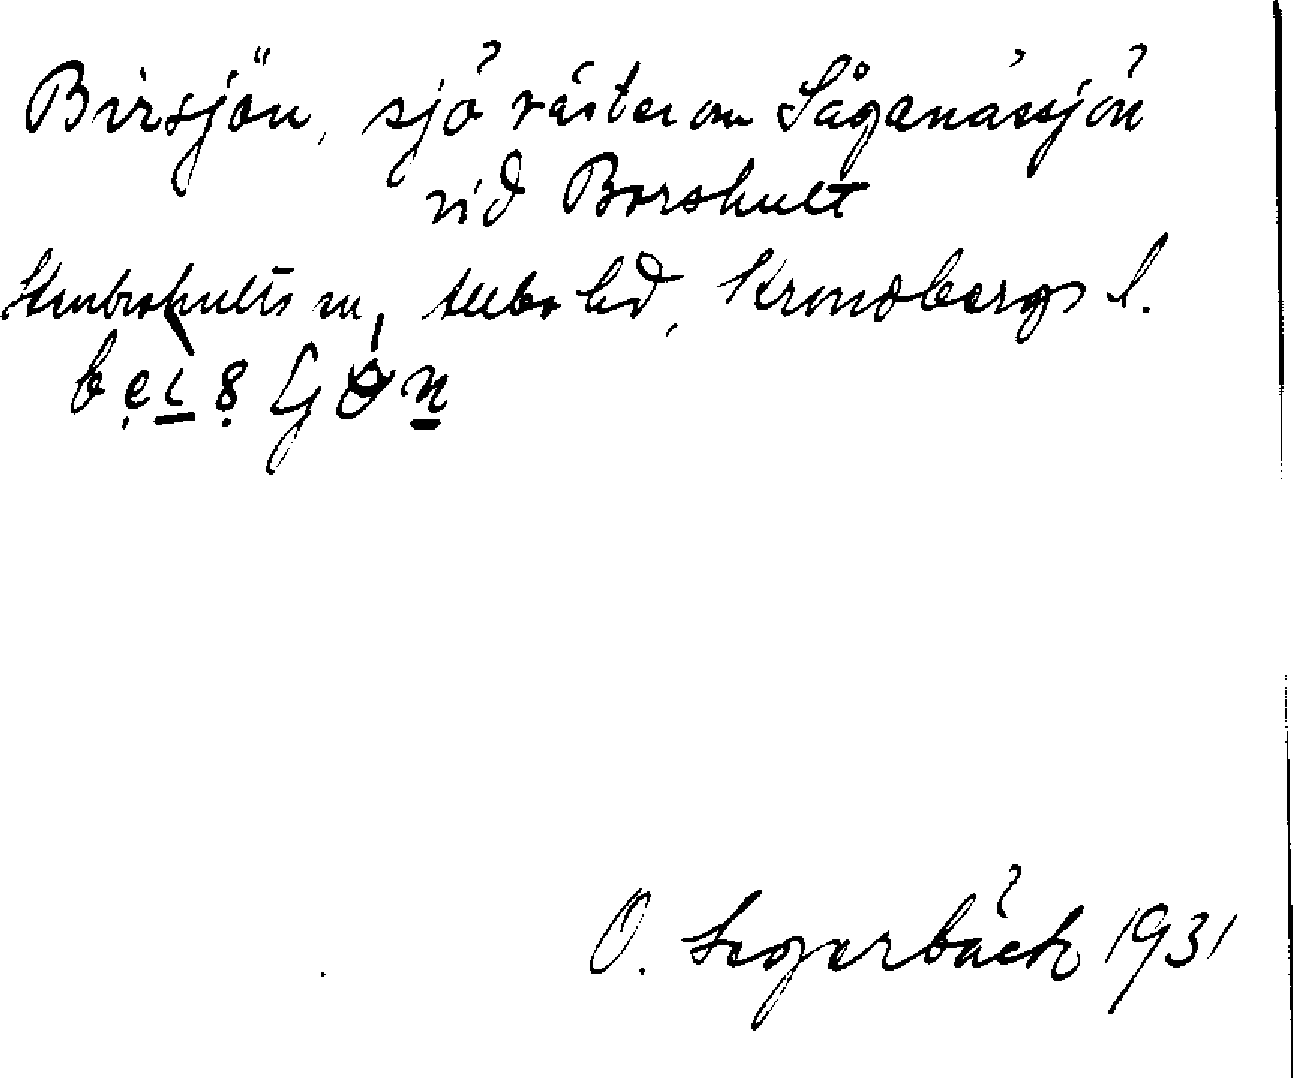 Birsjön, sjö väster om Såganässjön
vid Borshult
Stenbrohults sn, Allbo hd, Kronobergs l.
O. Segerbäck 1931